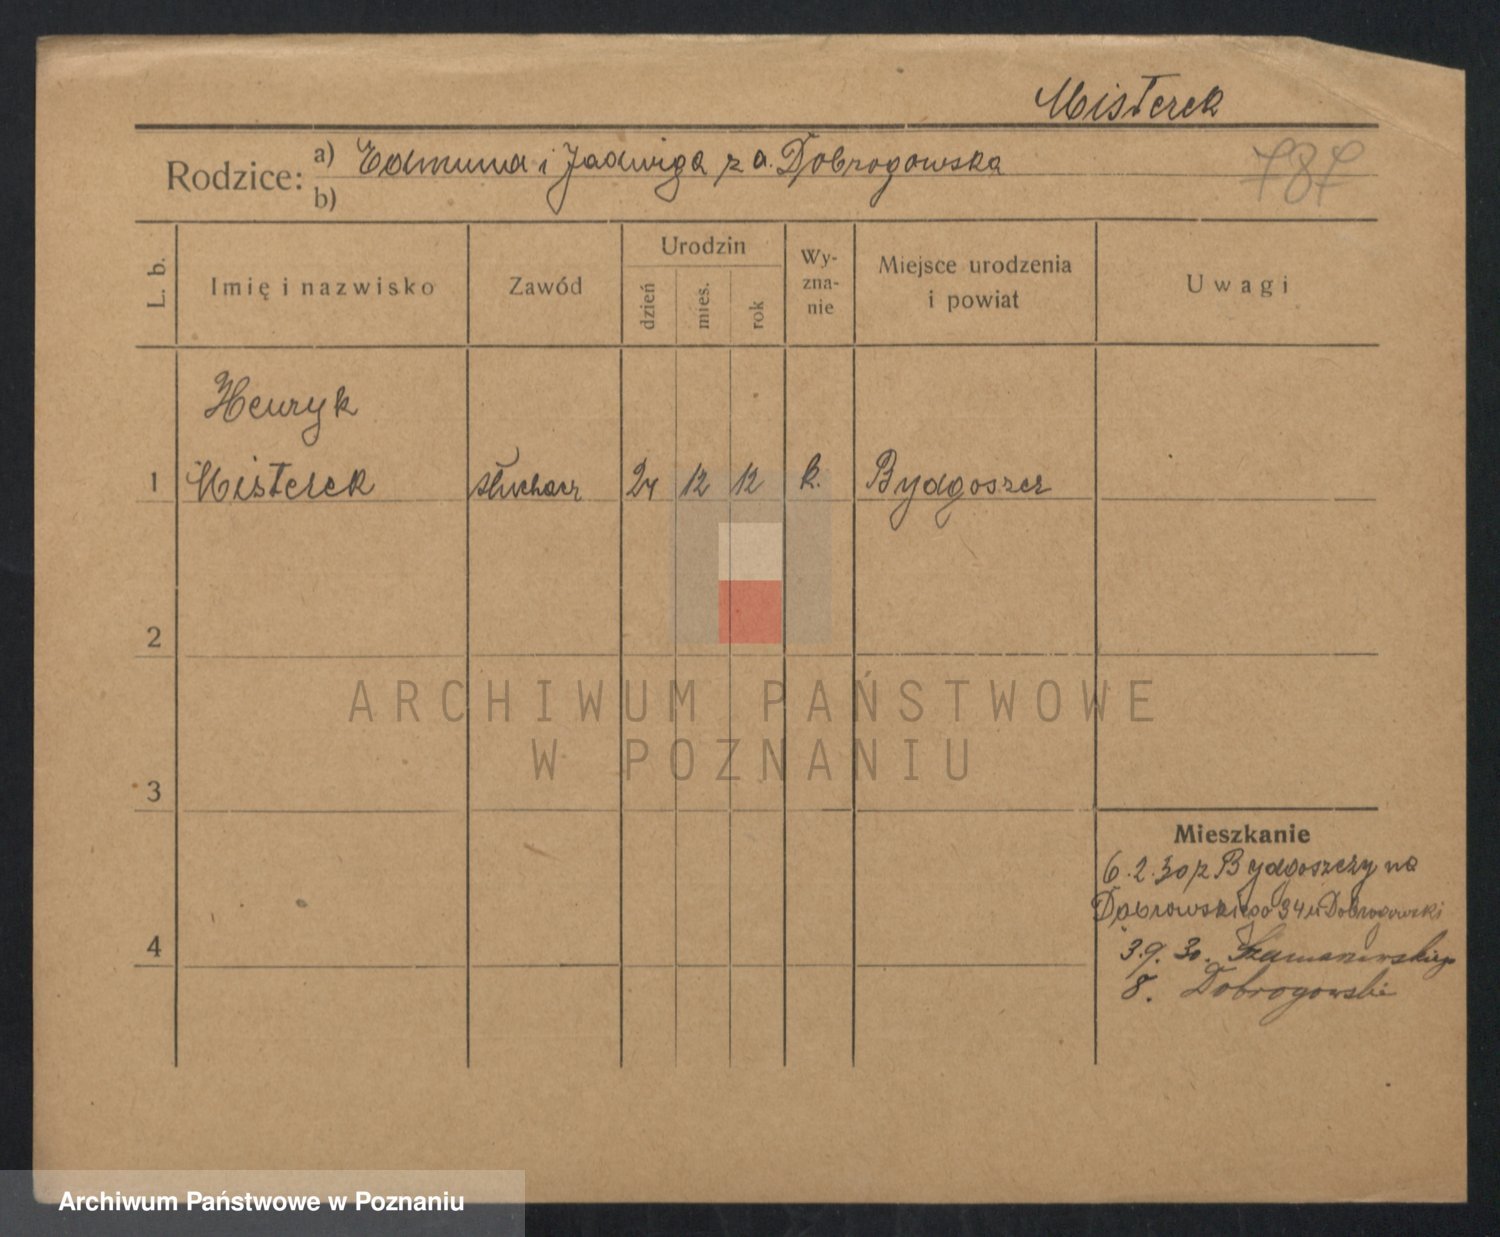 Misterek
Rodzice: a) Edmund i Jadwiga z d. Dobrogowska
b)
787
L. b.
Imię i nazwisko
Zawód
Urodzin
dzień
mies.
rok
Wy-
zna-
nie
Miejsce urodzenia
i powiat
Uwagi
Henryk
1 Misterek słuchacz 24 12 12 k. Bydgoszcz
2
ARCHIWUM PAŃSTWOWE
W POZNANIU
3
Mieszkanie
6.2.30 z Bydgoszczy na
Dąbrowskiego 34 u Dobrogowski
4
3.9.30. Szamarzewskiego
8. Dobrogowski
Archiwum Państwowe w Poznaniu